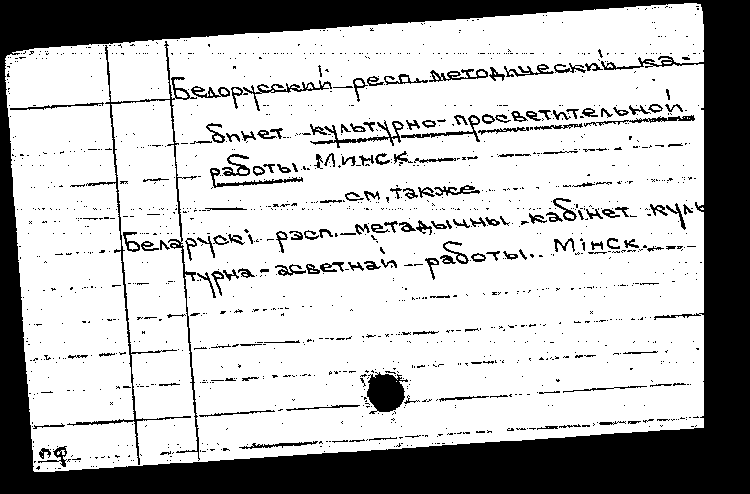 Белорусский респ. методический ка-
бинет культурно-просветительной
работы. Минск.
см. также
Беларускі рэсп. метадычны кабінет куль
турна-асветнай работы. Мінск.
пф